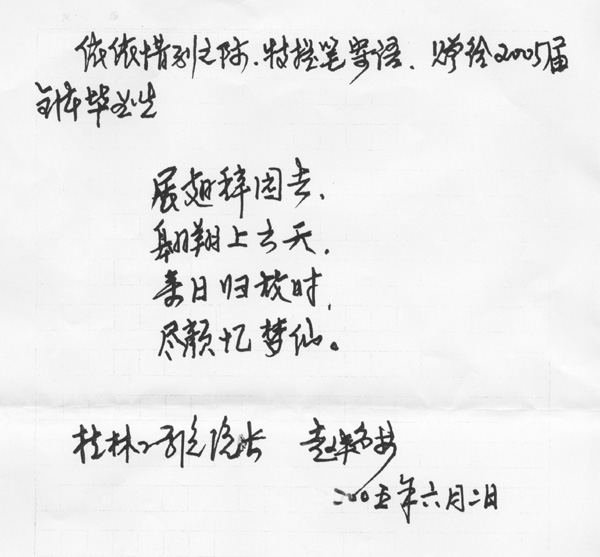 依依惜别之际.特提笔寄语.赠给2005届
全体毕业生
展翅辞园去,
翱翔上云天.
来日归故时,
尽颜忆梦仙。
桂林工学院院长
二00五年六月二日